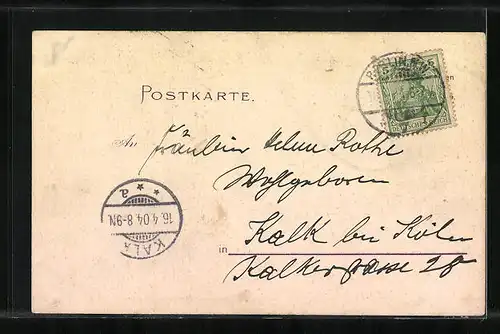 BERLIN
POSTKARTE.
An Fräulein Helene Rothe
Wohlgeboren
* a *
16.4.04.8-9N.
KALK
in Kalk bei Köln
Kalkerstrasse 28